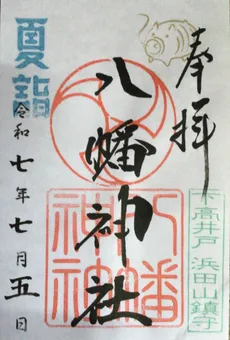 奉拝
八幡神社
八幡
神社
下高井戸 浜田山鎮守
夏詣
令和七年七月五日